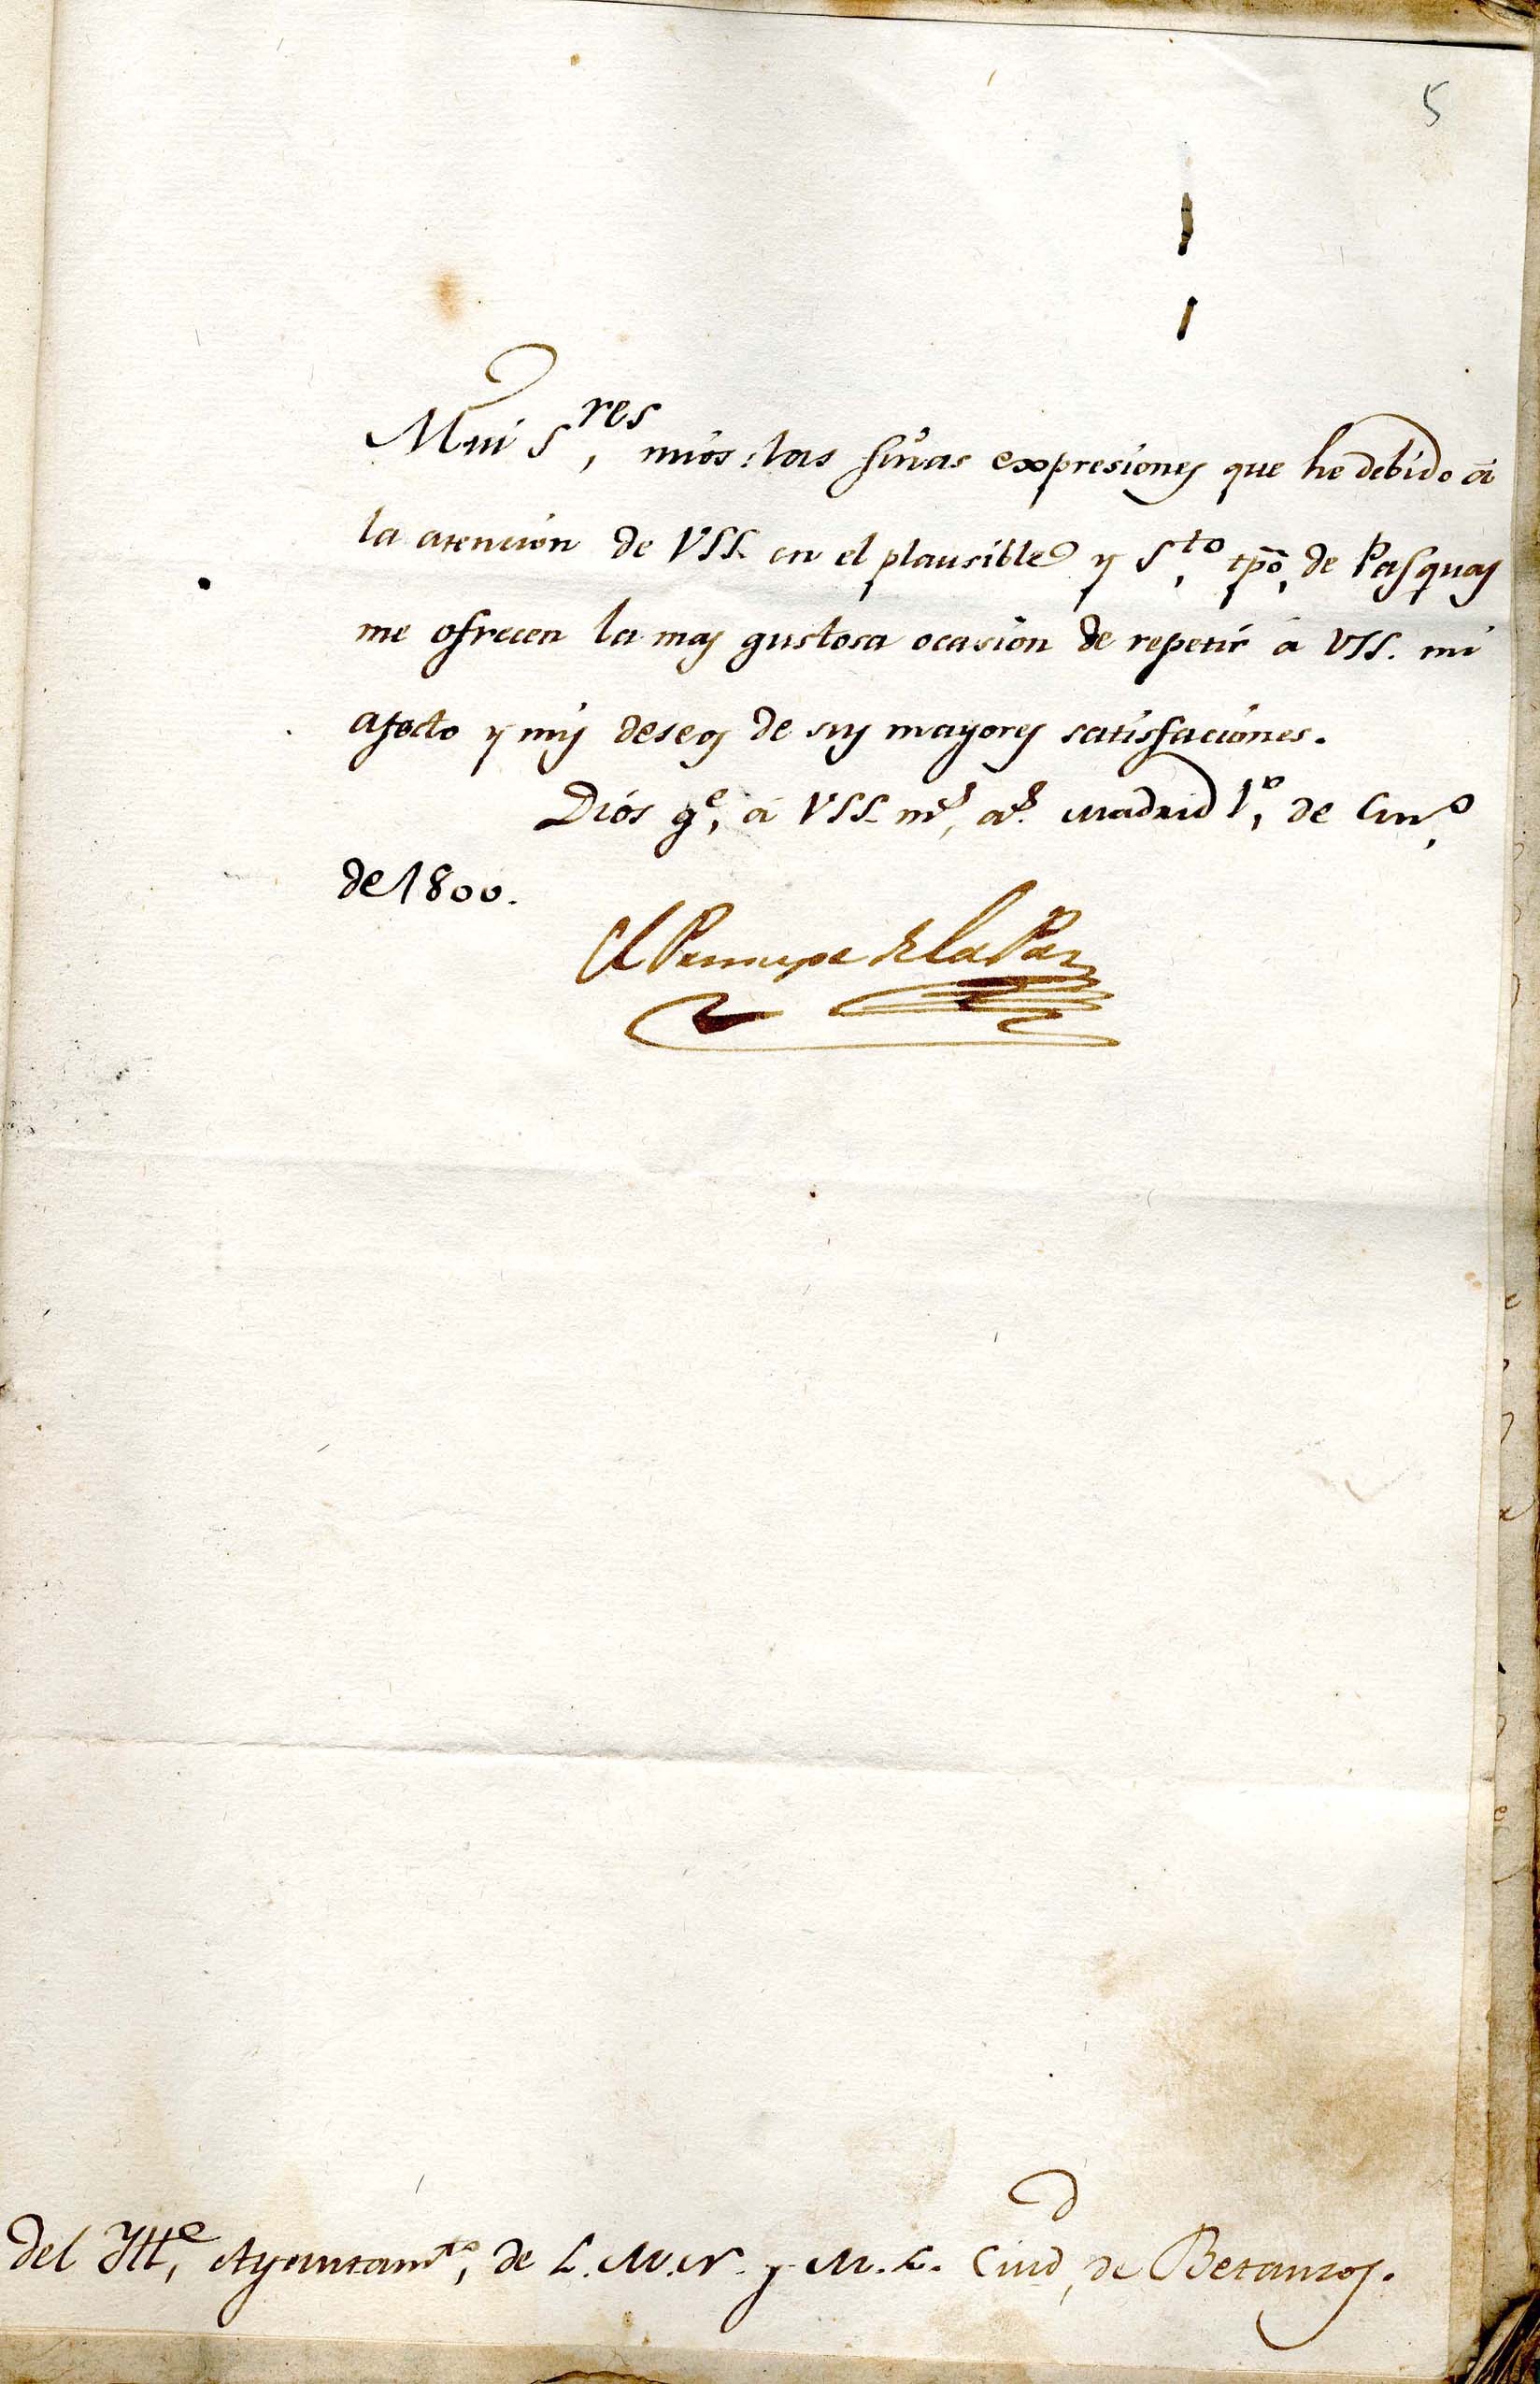 5
Mui S.res mios: las finas expresiones que he debido a
la atencion de VSS. en el plausible y S.to tpõ, de Pasquas
me ofrecen la mas gustosa ocasion de repetir a VSS. mi
afecto y mis deseos de sus mayores satisfaciones.
Dios g.e a VSS. m.s a.s Madrid 1.o de En.o
de 1800.
El Principe de la Paz
del Ill.e Ayuntam.to de L. M. N. y M. L. Ciud.d de Betanzos.